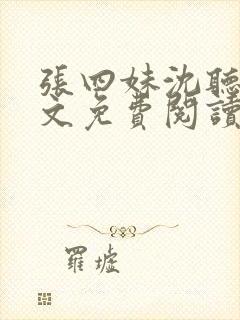 張四妹沈聽
文免費閱讀
羅墟